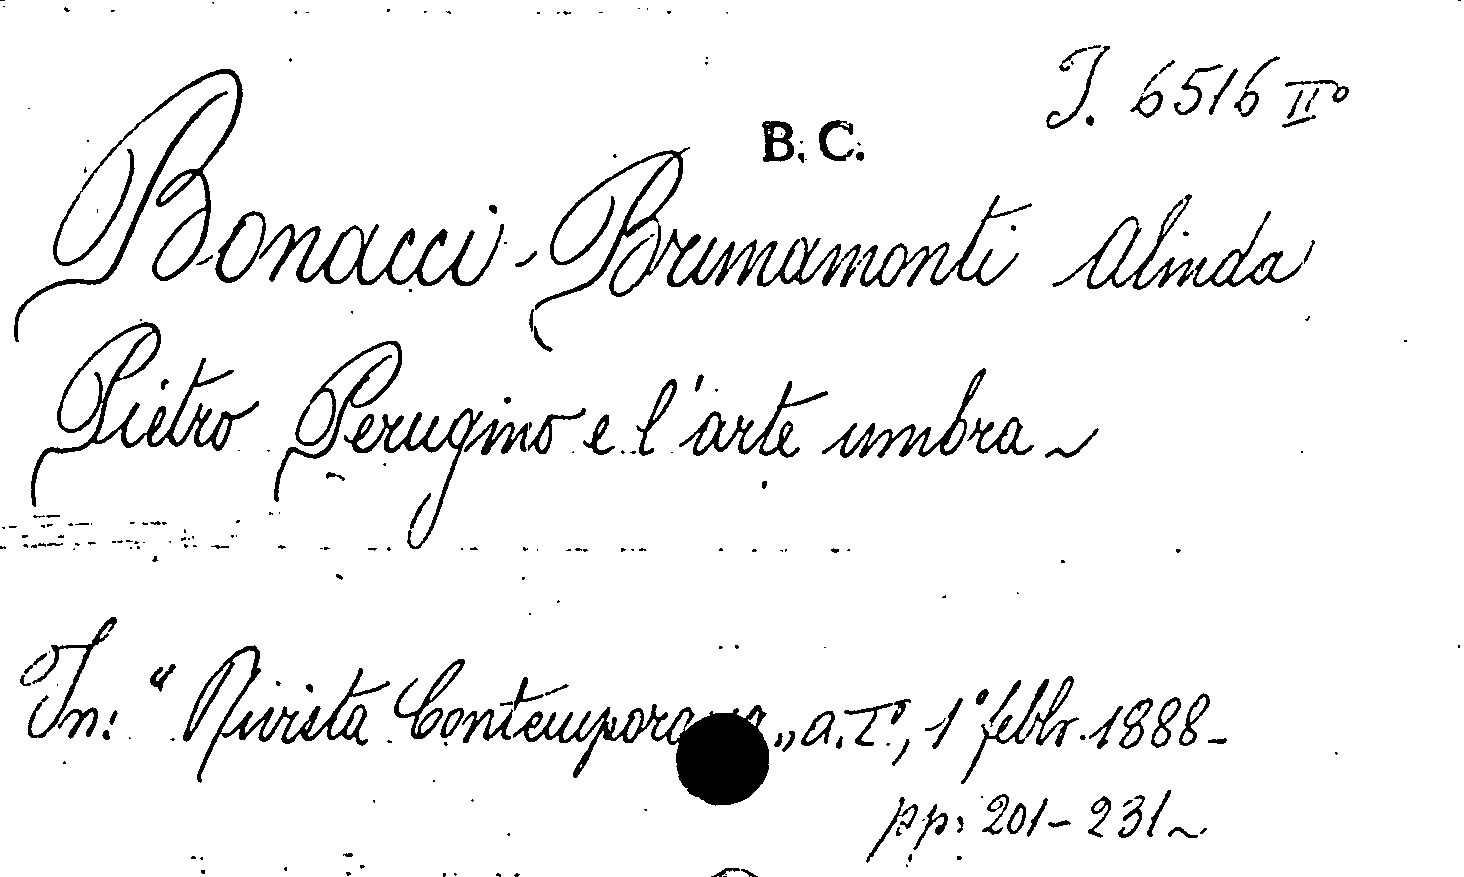 I. 6516 II°
B. C.
Bonacci-Brunamonti Alinda
Pietro Perugino e l'arte umbra ~
In: "Rivista Contemporanea„ a. I°, 1° febbr. 1888 -
pp. 201 - 231 ~